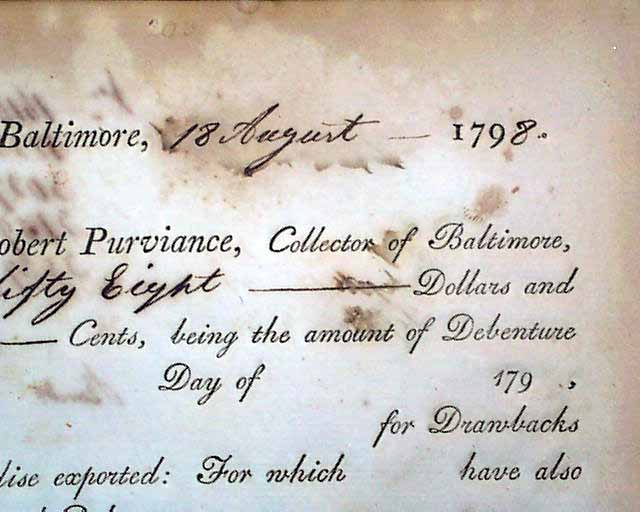 Baltimore, 18 August — 1798.
obert Purviance, Collector of Baltimore,
fifty Eight ——— Dollars and
—— Cents, being the amount of Debenture
Day of 179 .,
for Drawbacks
dise exported: For which have also